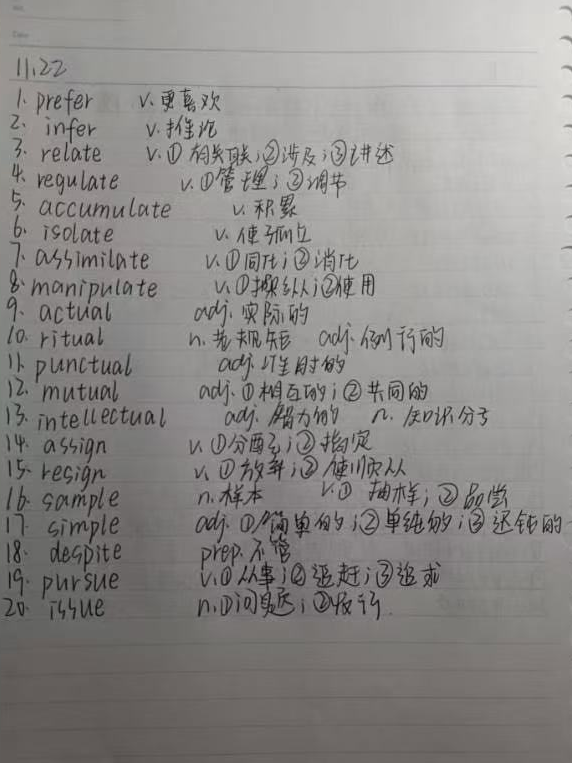 11.22
1. prefer v. 更喜欢
2. infer v. 推论
3. relate v. ① 有关联；②涉及；③讲述
4. regulate v. ①管理；②调节
5. accumulate v. 积累
6. isolate v. 使孤立
7. assimilate v. ①同化；②消化
8. manipulate v. ①操纵；②使用
9. actual adj. 实际的
10. ritual n. 老规矩 adj. 例行的
11. punctual adj. 准时的
12. mutual adj. ①相互的；②共同的
13. intellectual adj. 智力的 n. 知识分子
14. assign v. ①分配；②指定
15. resign v. ①放弃；②使顺从
16. sample n. 样本 v. ① 抽样；②品尝
17. simple adj. ①简单的；②单纯的；③迟钝的
18. despite prep. 不管
19. pursue v. ①从事；②追赶；③追求
20. issue n. ①问题；②发行